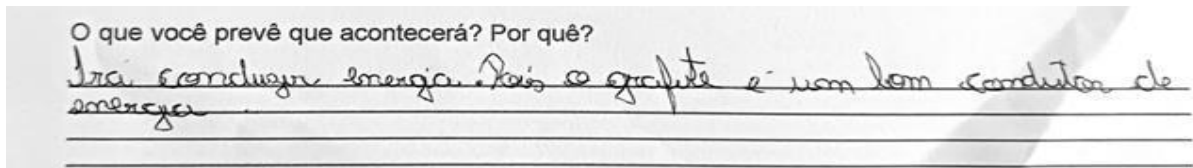 O que você prevê que acontecerá? Por quê?
Irá conduzir energia. Pois o grafite é um bom condutor de
energia.